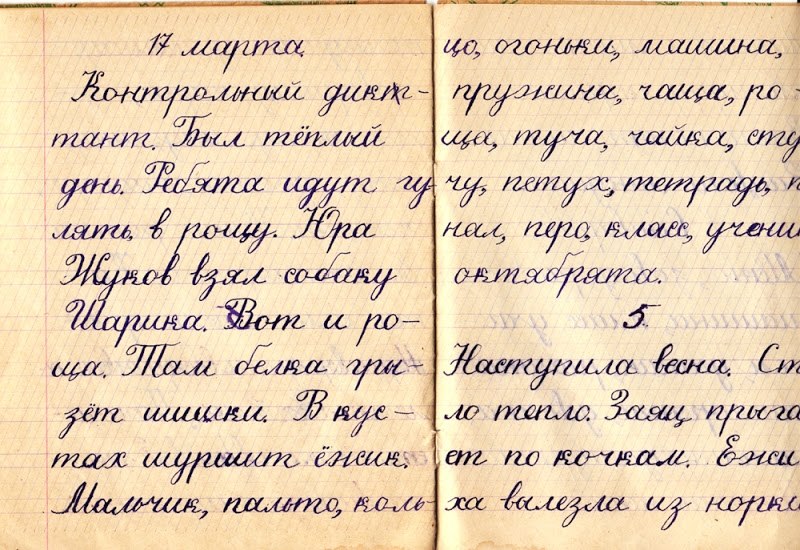 17 марта.
Контрольный дикт-
тант. Был тёплый
день. Ребята идут гу-
лять в рощу. Юра
Жуков взял собаку
Шарика. Вот и ро-
ща. Там белка гры-
зёт шишки. В кус-
тах шуршит ёжик.
Мальчик, пальто, коль-
цо, огоньки, машина,
пружина, чаща, ро-
ща, туча, чайка, сту
чу, петух, тетрадь, п
нал, перо, класс, учени
октябрята.
5
Наступила весна. Ст
ло тепло. Заяц прыга
ет по кочкам. Ежи
ха вылезла из норки